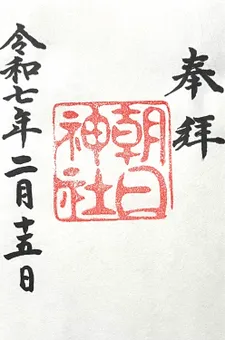 奉拜
朝日
神社
令和七年二月十五日